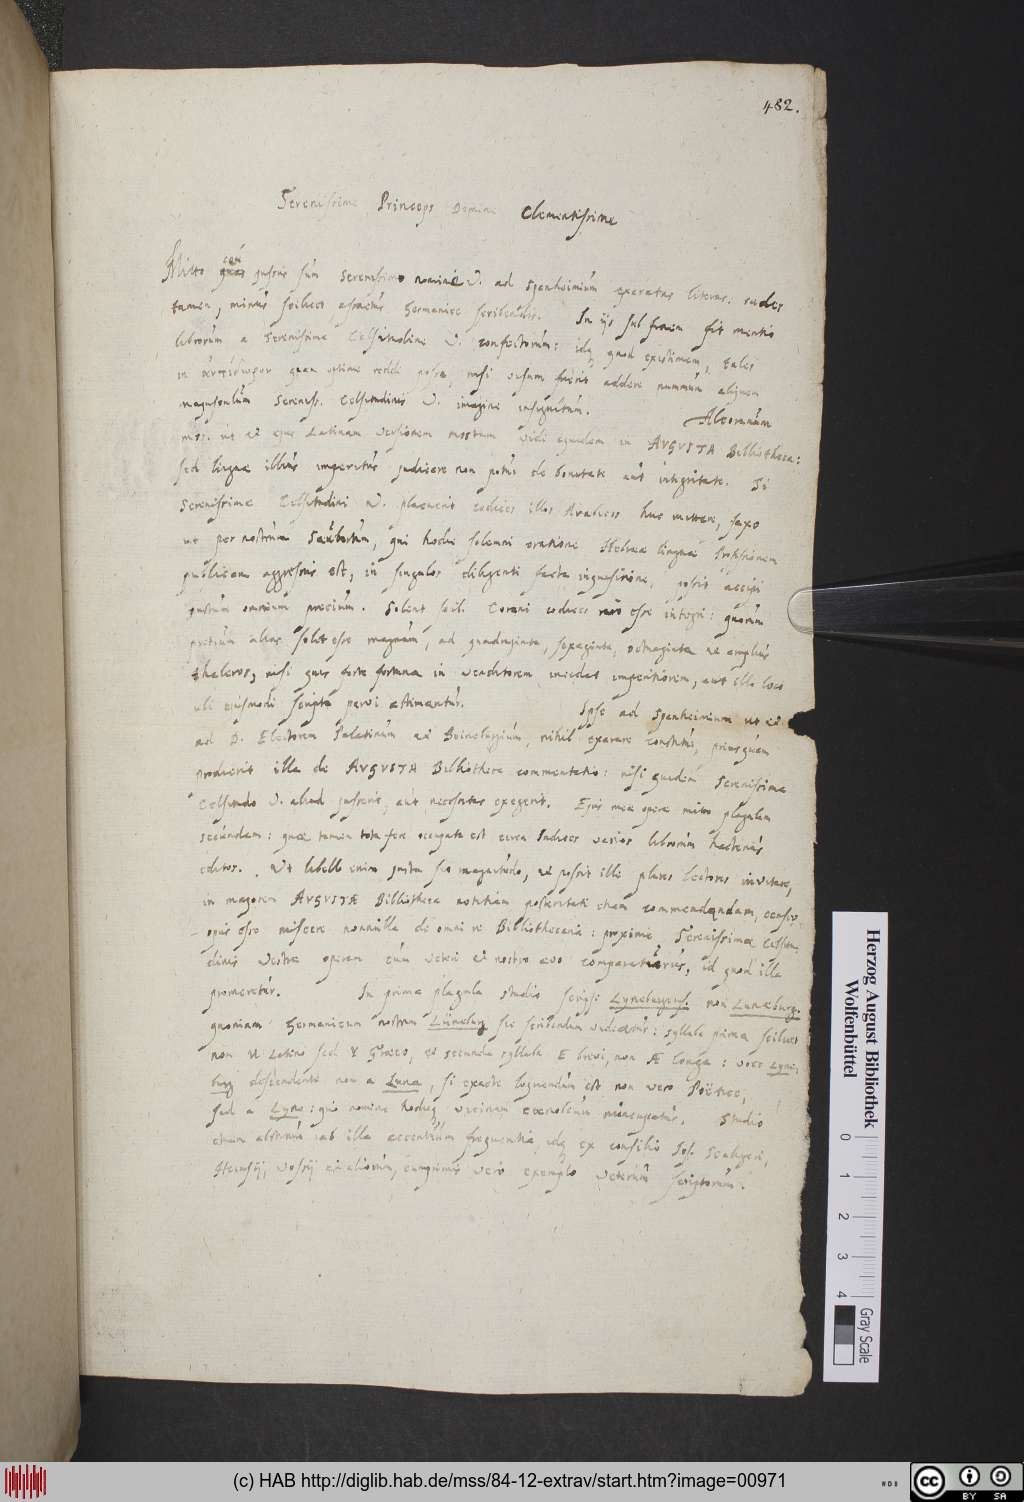 482.
Serenissime Princeps Domine Clementissime
Mitto ceu jussus sum Serenissimo nomine V. ad Spenheimium exaratas literas: sudes
tamen, minus scilicet assuetus Germanice scribendis. In iis sub finem fit mentio
librorum a Serenissima Celsitudine V. confectorum: idq quod existimem, tales
in ἀντίδωρον quam optime reddi posse, nisi visum fuerit addere nummum aliquem
magnsonlum Sereniss. Celsitudinis V. imagine insignitum. Alcoranum
ms. ut et ejus Latinam versionem nostram vidi equidem in AVGVSTA Bibliotheca:
sed linguæ illius imperitus judicare non potui de bonitate aut integritate. Si
Serenissimæ Celsitudini V. placuerit codices illos Arabicos huc mittere, faxo
ut per nostrum Saubertum, qui hodie solemni oratione Hebrææ linguæ Professionem
publicam aggressus est, in singulos diligenti facta inquisitione, possit accipi
justum omnium precium. Solent scil. Corani codices raro esse integri: quorum
pretium alias solet esse magnum, ad quadraginta, sexaginta, octoginta et amplius
thaleros, nisi quis forte fortuna in venditorem incidat imperitiorem, aut illo loco
ubi ejusmodi scripta parvi æstimantur. Ipse ad Spenheimium ut et
ad D. Electorem Palatinum et Boineburgium, nihil exarare constitui, priusquam
prodierit illa de AVGVSTA Bibliotheca commentatio: nisi quidem Serenissima
Celsitudo V. aliud jusserit, aut necessitas exegerit. Ejus meæ operæ mitto plagulam
secundam: quæ tamen tota fere occupata est circa Indices varios librorum hactenus
editos. Ut libello enim justa sit magnitudo, et possit ille plures lectores invitare,
in majorem AVGVSTÆ Bibliothecæ notitiam posteritati etiam commendandam, censui
opus esse miscere nonnulla de omni re Bibliothecaria: proxime Serenissimæ Celsitu-
dinis Vestræ operam cum veteri et nostro ævo comparaturus, id quod illa
promeretur. In prima plagula studio scripsi Lyneburgens. non Lunæburg.
quoniam Germanicum nostrum Lüneburg sic scribendum videatur: syllaba prima scilicet
non U Latino sed Y Græco, et secunda syllaba E brevi, non Æ longa: voce Lyne-
burg descendente non a Luna, si exacte loquendum est non vero Poëtice,
sed a Lyne: quo nomine hodieq vicinum coenobium nuncupatur. Studio
etiam abstinui ab illa accentuum frequentia, idq ex consilio Jos. Scaligeri,
Heinsii, Vossii et aliorum, cumprimis vero exemplo veterum scriptorum.
Herzog August Bibliothek
Wolfenbüttel
0 1 2 3 4
Gray Scale
(c) HAB http://diglib.hab.de/mss/84-12-extrav/start.htm?image=00971
WDB
cc BY SA